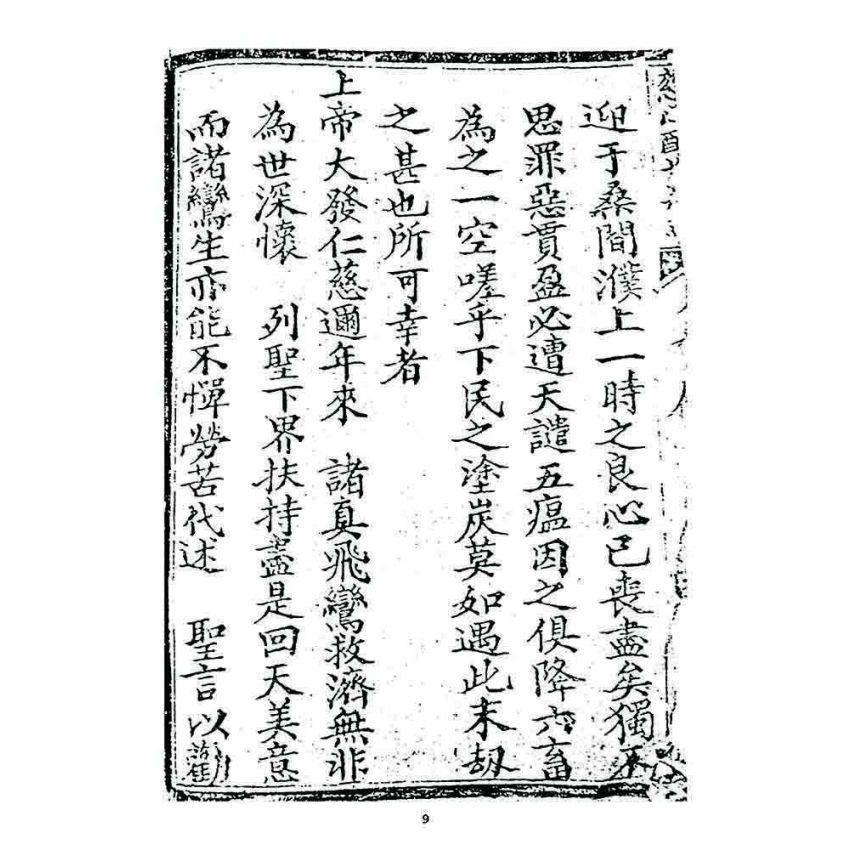 迎于桑間濮上一時之良心已喪盡矣獨不
思罪惡貫盈必遭天譴五瘟因之俱降六畜
為之一空嗟乎下民之塗炭莫如遇此末劫
之甚也所可幸者
上帝大發仁慈邇年來 諸真飛鸞救濟無非
為世深懷 列聖下界扶持盡是回天美意
而諸鸞生亦能不憚勞苦代述 聖言以勸
9